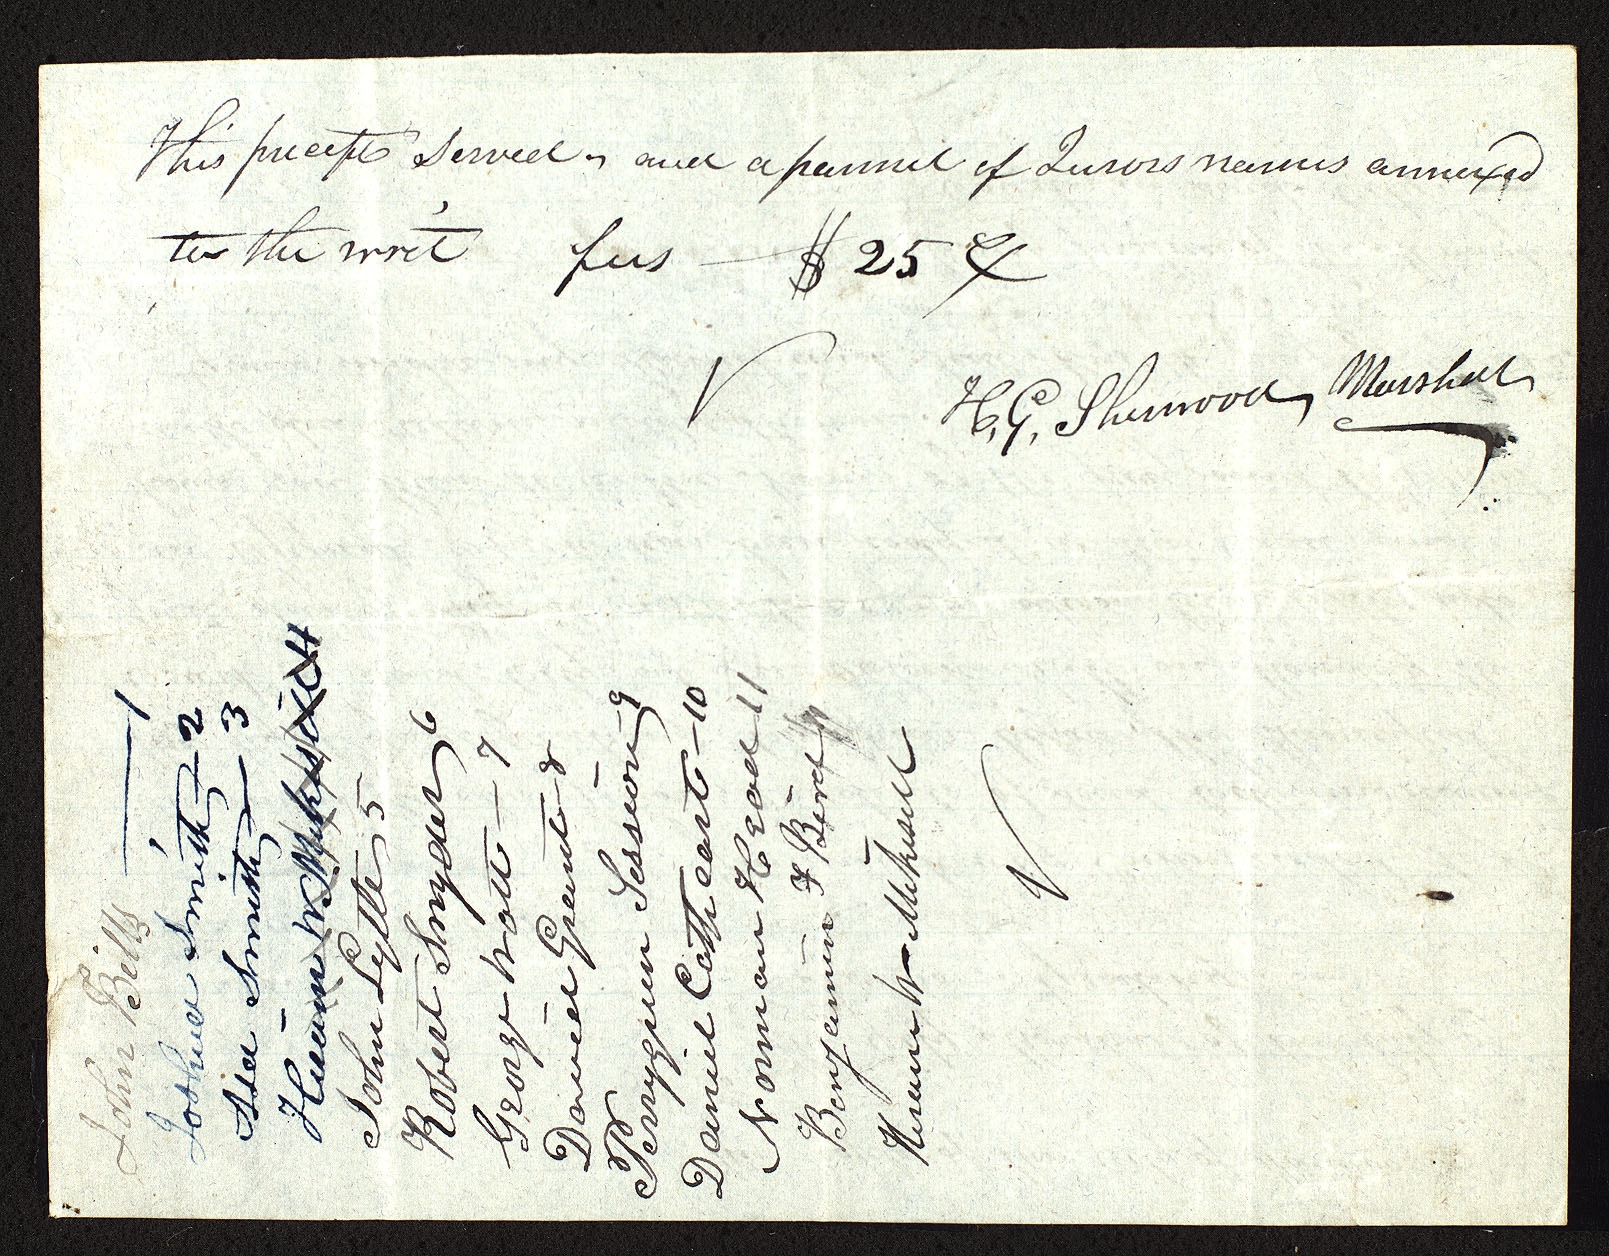 This precept Served, and a pannil of Jurors names annexed
to the writ fees — $ 25 cts
H. G. Sherwood, Marshall
John Bills — 1
Joshua Smith — 2
Asa Smith — 3
Hiram W Mikesell 4
John Lytle 5
Robert Snyder 6
George Watt — 7
David Grant — 8
Perrygreen Sessions 9
Daniel Cathcart — 10
Norman Head 11
Benjamin F Bird
Hiram W Mikesell